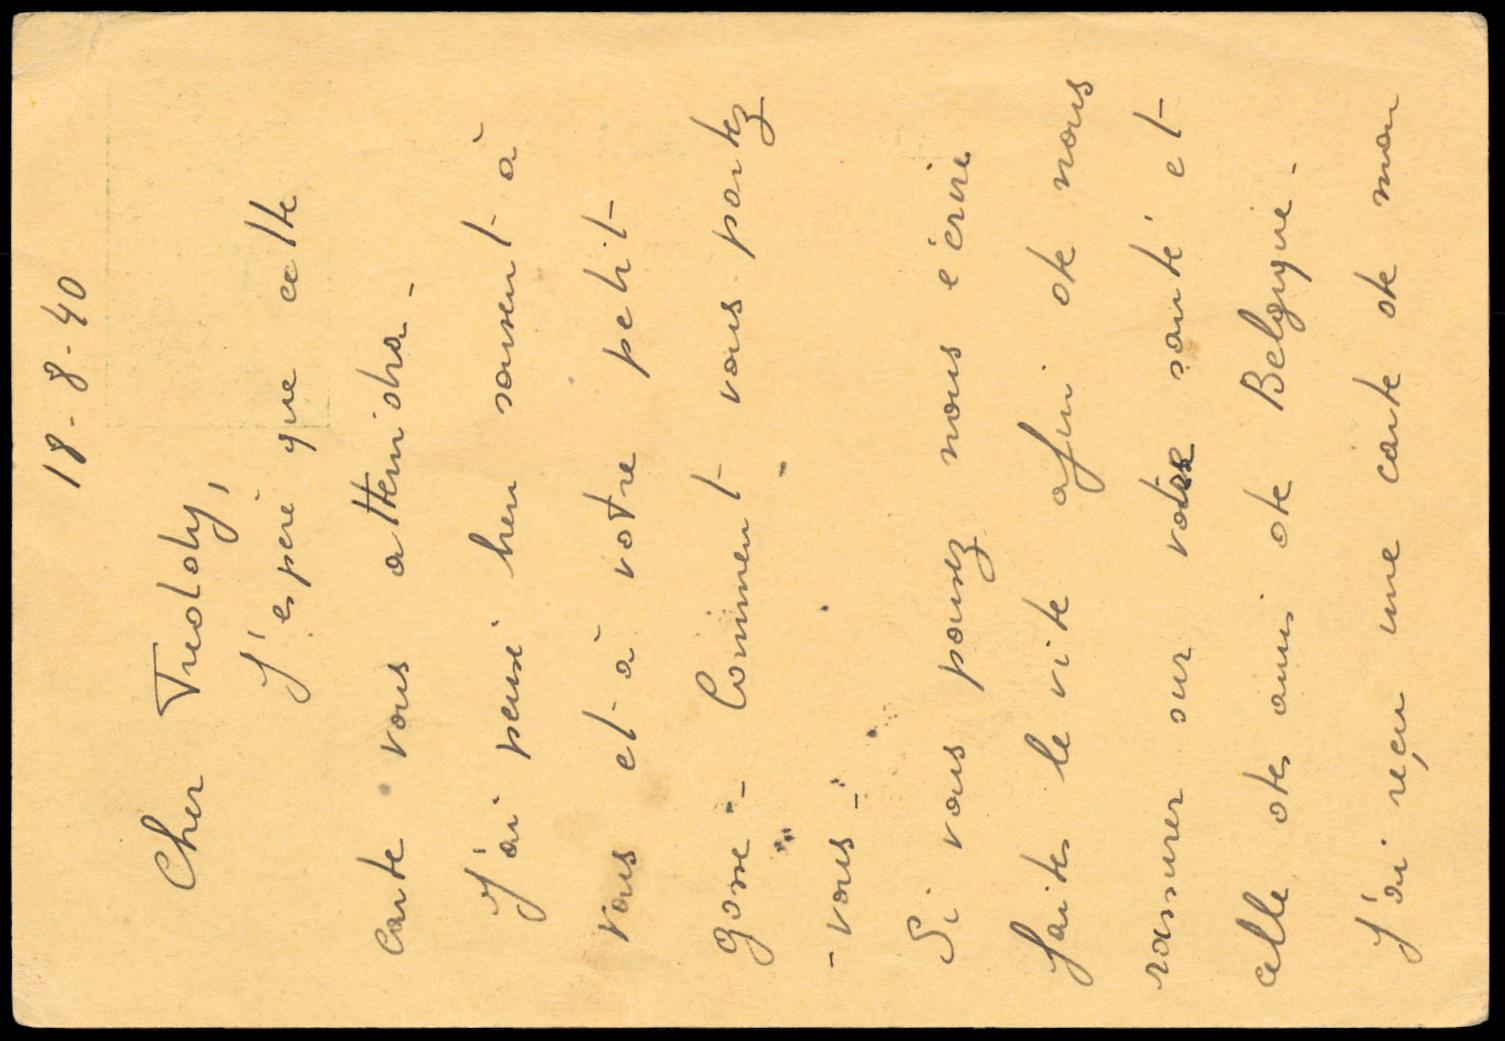 18-8-40
Cher Freddy,
J'espère que cette
carte vous atteindra -
J'ai pensé bien souvent à
vous et à votre petit
gosse - Comment vous portez
- vous -
Si vous pouvez nous écrire
faites le vite afin de nous
rassurer sur votre santé et
celle des amis de Belgique -
J'ai reçu une carte de mon